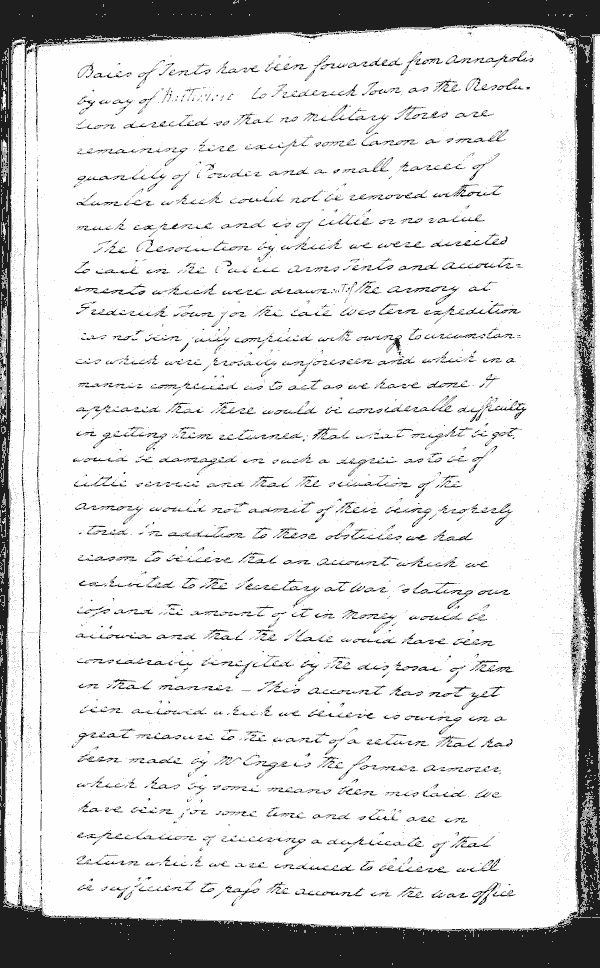 Bales of Tents have been forwarded from Annapolis
by way of Baltimore to Frederick Town as the Resolu-
tion directed so that no military stores are
remaining here except some Canon a small
quantity of Powder and a small parcel of
Lumber which could not be removed without
much expence and is of little or no value
The Resolution by which we were directed
to call in the Public Arms Tents and accoutr=
ements which were drawn of the Armory at
Frederick Town for the late Western expedition
has not been fully complied with owing to circumstan=
ces which were probably unforeseen and which in a
manner compelled us to act as we have done. It
appeared that there would be considerable difficulty
in getting them returned; that what might be got,
would be damaged in such a degree as to be of
little service and that the situation of the
armory would not admit of their being properly
stored. In addition to these obsticles we had
reason to believe that an account which we
exhivited to the Secretary at War, stating our
loss and the amount of it in Money, would be
allowed and that the State would have been
considerably benefited by the disposal of them
in that manner – This account has not yet
been allowed which we believe is owing in a
great measure to the want of a return that had
been made by Mr Engels the former armorer,
which has by some means been mislaid. We
have been for some time and still are in
expectation of receiving a duplicate of that
return which we are induced to believe will
be sufficient to pass the account in the War office